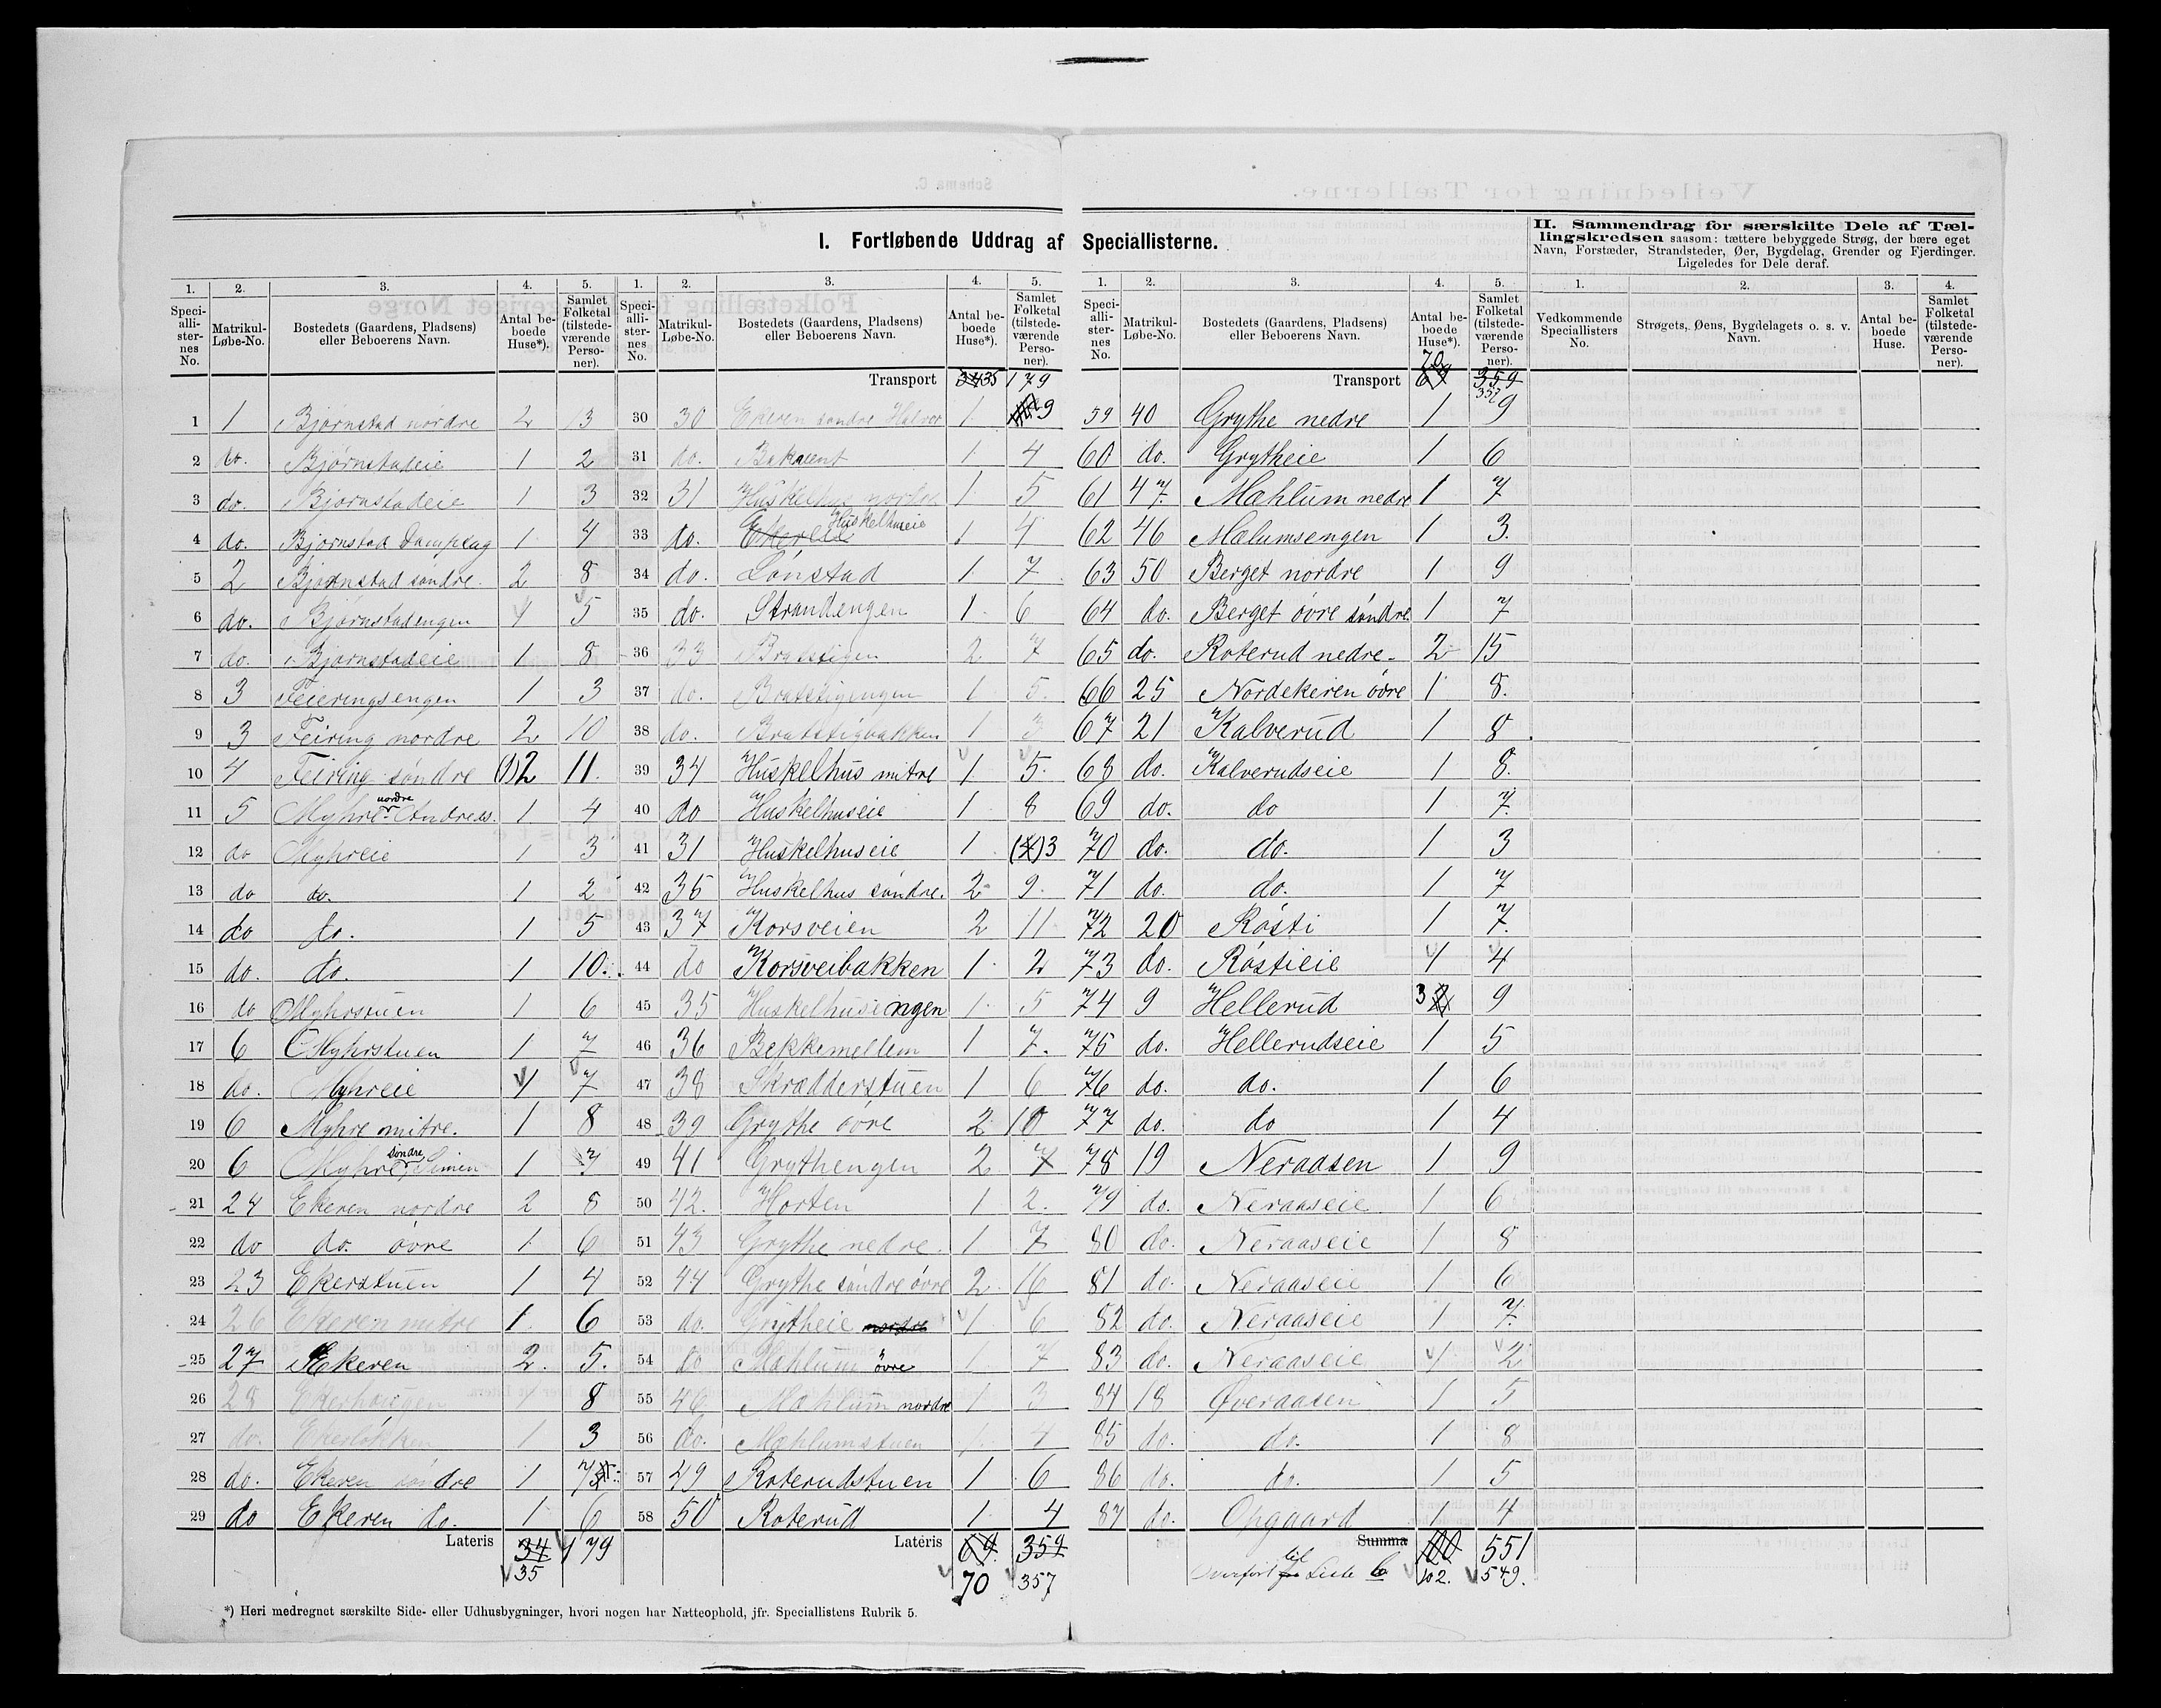 I. Fortløbende Uddrag af Speciallisterne.
II. Sammendrag for særskilte Dele af Tællingskredsen saasom: tættere bebyggede Strøg, der bære eget Navn, Forstæder, Strandsteder, Øer, Bygdelag, Grender og Fjerdinger. Ligeledes for Dele deraf.
1. 2. 3. 4. 5.
Speciallisternes No. Matrikul-Løbe-No. Bostedets (Gaardens, Pladsens) eller Beboerens Navn. Antal beboede Huse*). Samlet Folketal (tilstedeværende Personer).
1 1 Bjørnstad nordre 2 13
2 do. Bjørnstadeie 1 2
3 do. Bjørnstadeie 1 3
4 do. Bjørnstad Dampsag 1 4
5 2 Bjørnstad søndre 2 8
6 do. Bjørnstadengen 1 5
7 do. Bjørnstadeie 1 8
8 3 Feieringsengen 1 3
9 3 Feiring nordre 2 10
10 4 Feiring søndre (1) 2 11.
11 5 Myhre nordre Andreas. 1 4
12 do Myhreie 1 3
13 do do. 1 2
14 do do. 1 5
15 do. do. 1 10.
16 do Myhrstuen 1 6
17 6 Myhrstuen 1 7
18 do. Myhreie 1 7
19 6 Myhre mitre. 1 8
20 6 Myhre søndre Simen 1 7
21 24 Ekeren nordre 2 8
22 do do. øvre 1 6
23 23 Ekerstuen 1 4
24 26 Ekeren mitre 1. 6
25 27 Ekeren 2. 5.
26 28 Ekerhaugen 1 8
27 do. Ekerløkken 1 3
28 do. Ekeren søndre 1 7
29 do Ekeren do. 1 6
Lateris 34 179
35
1. 2. 3. 4. 5.
Speciallisternes No. Matrikul-Løbe-No. Bostedets (Gaardens, Pladsens) eller Beboerens Navn. Antal beboede Huse*). Samlet Folketal (tilstedeværende Personer).
Transport 34 35 179
30 30 Ekeren søndre Halvor 1 9
31 do. Bakaent 1 4
32 31 Huskelhus nordre 1 5
33 do. Huskelhuseie 1 4
34 do. Lønstad 1 7
35 do. Strandengen 1. 6
36 33 Bratstigen 2 7
37 do. Bratstigengen 1 5.
38 do. Bratstigbakken 1 3
39 34 Huskelhus mitre 1 5.
40 do Huskelhuseie 1 8
41 31 Huskelhuseie 1 (4) 3
42 35 Huskelhus søndre. 2 9.
43 37 Korsveien 2 11
44 do Korsveibakken 1. 2
45 35 Huskelhusengen 1. 5
46 36 Bekkemellem 1 7.
47 38 Skrædderstuen 1 6
48 39 Grythe øvre 2 10
49 41 Grythengen 2 7
50 42. Horten 1 2.
51 43 Grythe nedre. 1 7
52 44 Grythe søndre øvre 2. 16
53 do. Grytheie nordre 1 6
54 do Mæhlum øvre 1 7
55 46 Mæhlum nordre 1 3
56 do. Mæhlumstuen 1. 4
57 49 Roterudstuen 1 6
58 50 Roterud 1. 4
Lateris 69. 359
70 357
1. 2. 3. 4. 5.
Speciallisternes No. Matrikul-Løbe-No. Bostedets (Gaardens, Pladsens) eller Beboerens Navn. Antal beboede Huse*). Samlet Folketal (tilstedeværende Personer).
70
Transport 69 359
357
59 40 Grythe nedre 1 9
60 do. Grytheie 1 6
61 47 Mæhlum nedre 1 7
62 46 Mælumsengen 1 3.
63 50 Berget nordre 1 9
64 do. Berget øvre søndre 1 7
65 do. Roterud nedre 2 15
66 25 Nordekeren øvre 1 8.
67 21 Kalverud 1 8.
68 do. Kalverudseie 1 8.
69 do. do 1 7.
70 do. do. 1 3
71 do. do. 1 7
72 20 Røsti 1 7.
73 do. Røstieie 1 4
74 9 Hellerud 3 2 9
75 do. Hellerudseie 1 5
76 do. do. 1 6
77 do. do 1 4
78 19 Neraasen 1 9
79 do. Neraaseie 1 6
80 do. Neraaseie 1 8
81 do. Neraaseie 1 6
82 do. Neraaseie 1 7.
83 do. Neraaseie 1 2
84 18 Øveraasen 1 5
85 do. do. 1 8
86 do. do. 1 5
87 do. Opgaard 1 4
Summa 100 551
Overført til Liste b 102. 549.
1. 2. 3. 4.
Vedkommende Speciallisters No. Strøgets, Øens, Bygdelagets o. s. v. Navn. Antal beboede Huse. Samlet Folketal (tilstedeværende Personer).
*) Heri medregnet særskilte Side- eller Udhusbygninger, hvori nogen har Natteophold, jfr. Speciallistens Rubrik 5.